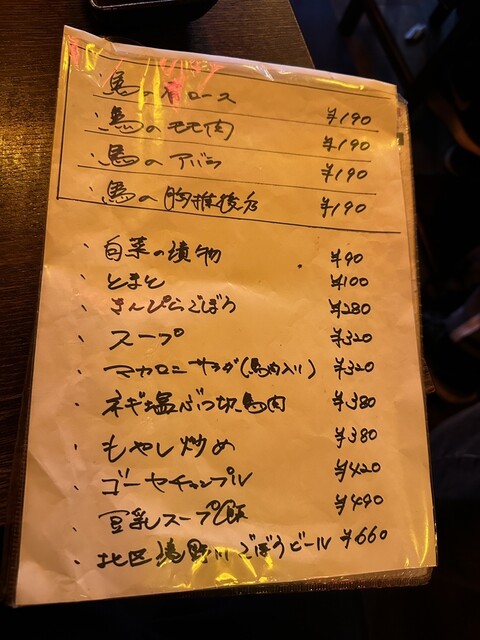 馬の肩ロース ¥190
馬のモモ肉 ¥190
馬のアバラ ¥190
馬の胸椎後方 ¥190
・白菜の漬物 ¥90
・とまと ¥100
・きんぴらごぼう ¥280
・スープ ¥320
・マカロニサラダ(馬肉入り) ¥320
・ネギ塩ぶつ切り馬肉 ¥380
・もやし炒め ¥380
・ゴーヤチャンプル ¥420
・豆乳スープ飯 ¥490
・北区 ごぼうビール ¥660